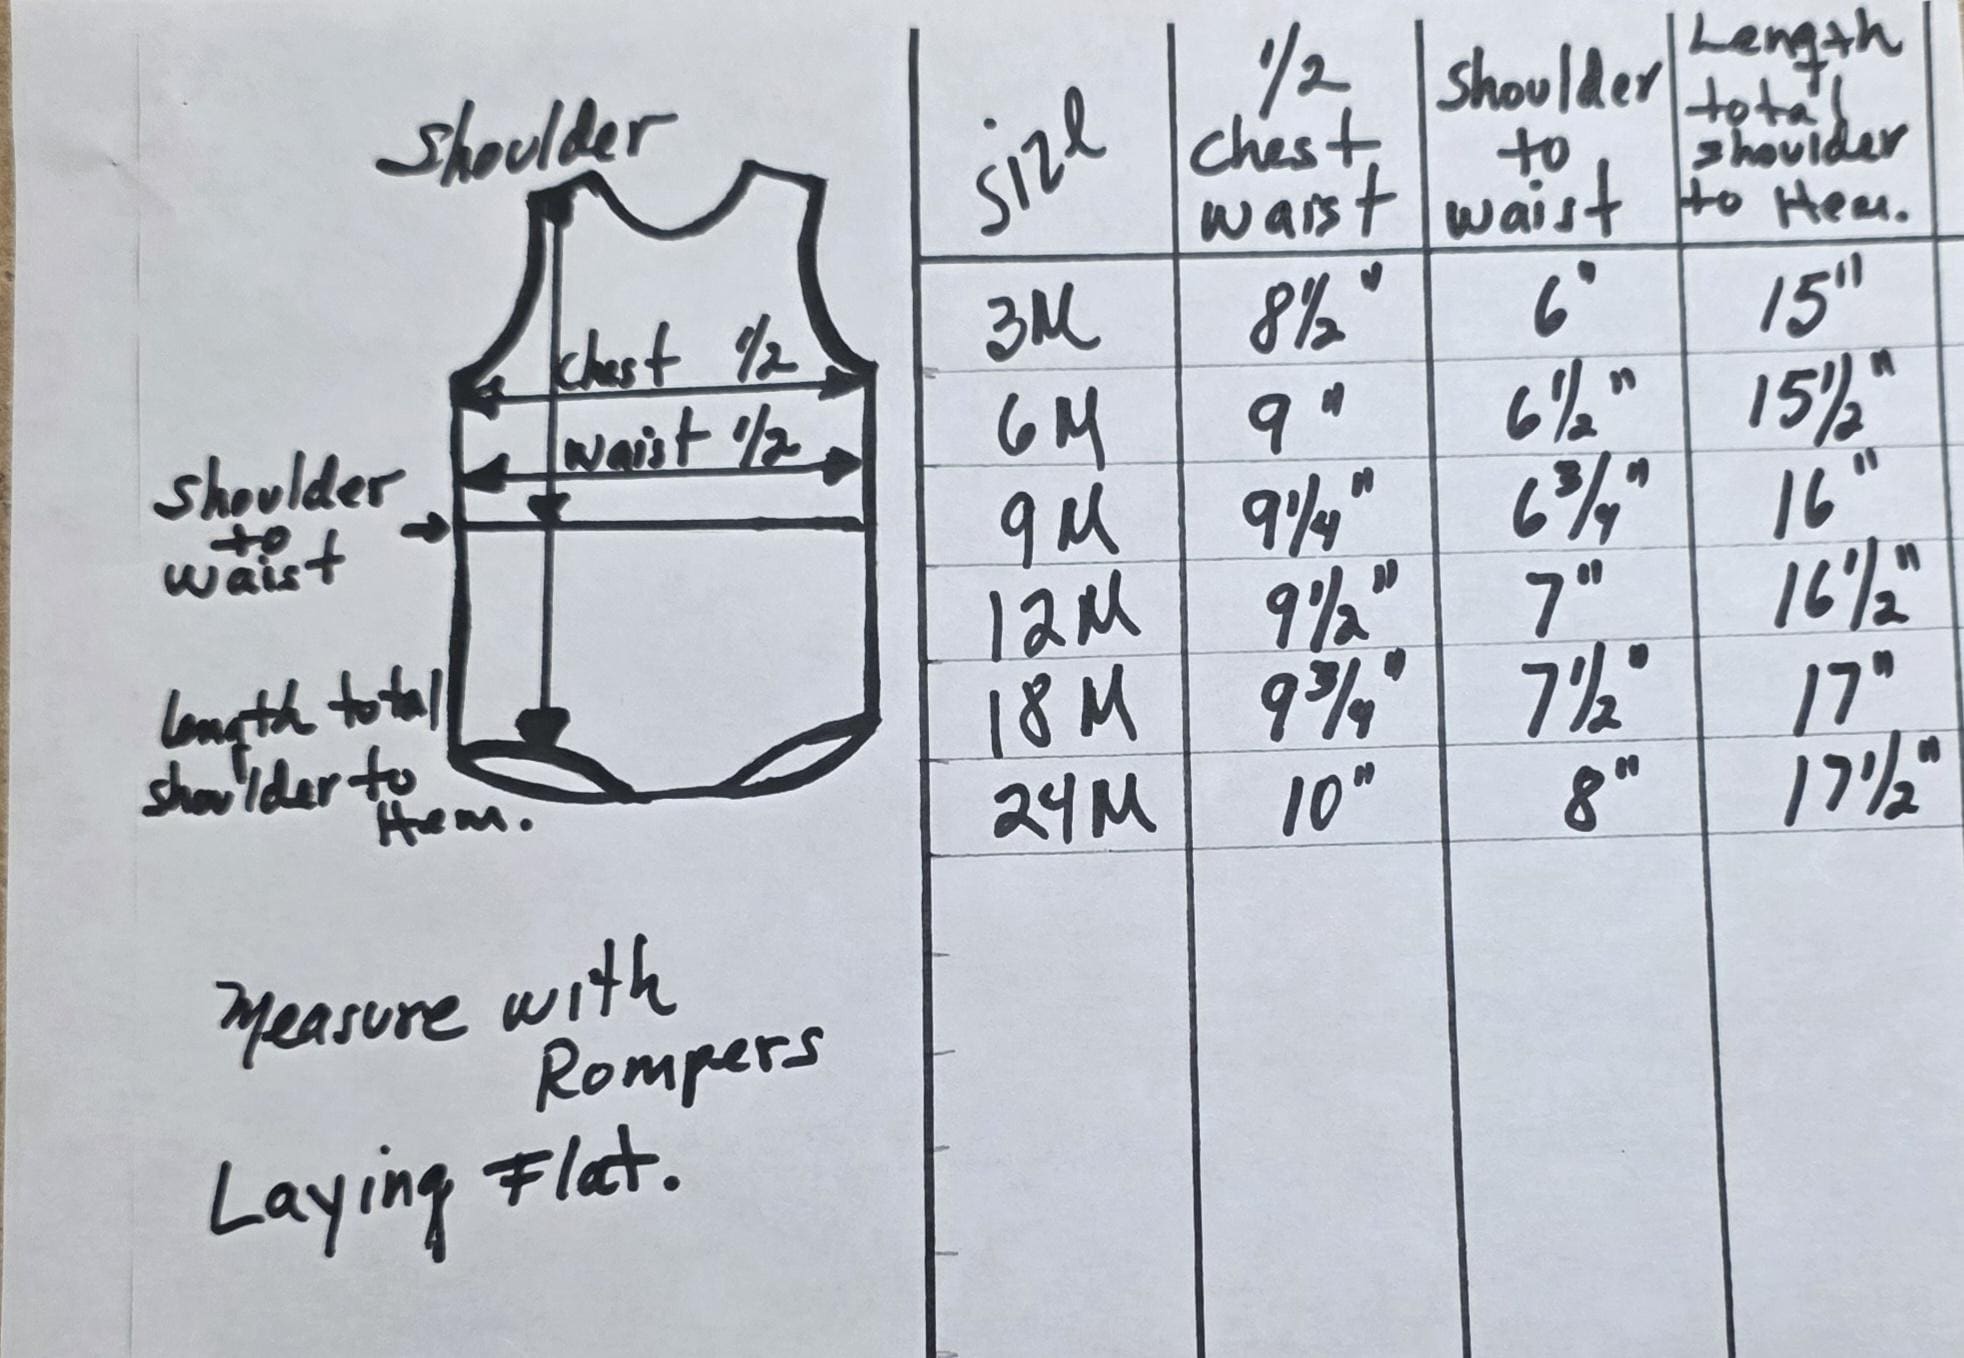 Shoulder
Chest 1/2
Waist 1/2
Shoulder
to
waist
Length total
shoulder to
Hem.
Measure with
Rompers
Laying Flat.
Size
1/2
Chest
waist
Shoulder
to
waist
Length
total
shoulder
to Hem.
3M 8 1/2" 6" 15"
6M 9" 6 1/2" 15 1/2"
9M 9 1/4" 6 3/4" 16"
12M 9 1/2" 7" 16 1/2"
18M 9 3/4" 7 1/2" 17"
24M 10" 8" 17 1/2"